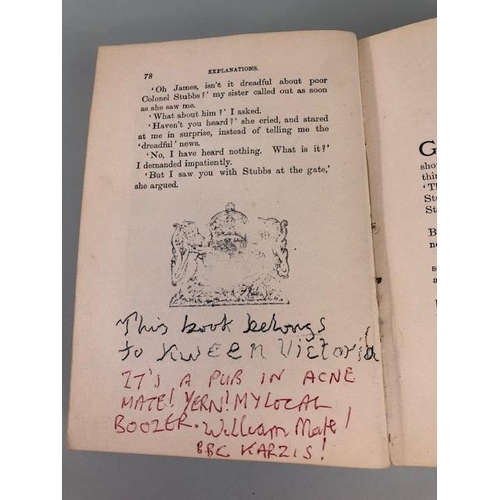 78
EXPLANATIONS.
'Oh James, isn't it dreadful about poor
Colonel Stubbs?' my sister called out as soon
as she saw me.
'What about him?' I asked.
'Haven't you heard?' she cried, and stared
at me in surprise, instead of telling me the
'dreadful' news.
'No, I have heard nothing. What is it?'
I demanded impatiently.
'But I saw you with Stubbs at the gate,'
she argued.
This book belongs
to KWEEN Victoria
IT'S A PUB IN ACNE
MATE! YERN! MY LOCAL
BOOZER. William Mate!
BBC KARZIS!
G
show
thin
'Th
Stu
Stu
B
no
so
a